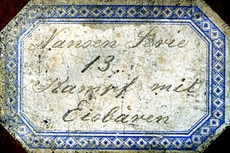 Nansen Serie
13.
Kampf mit
Eisbären